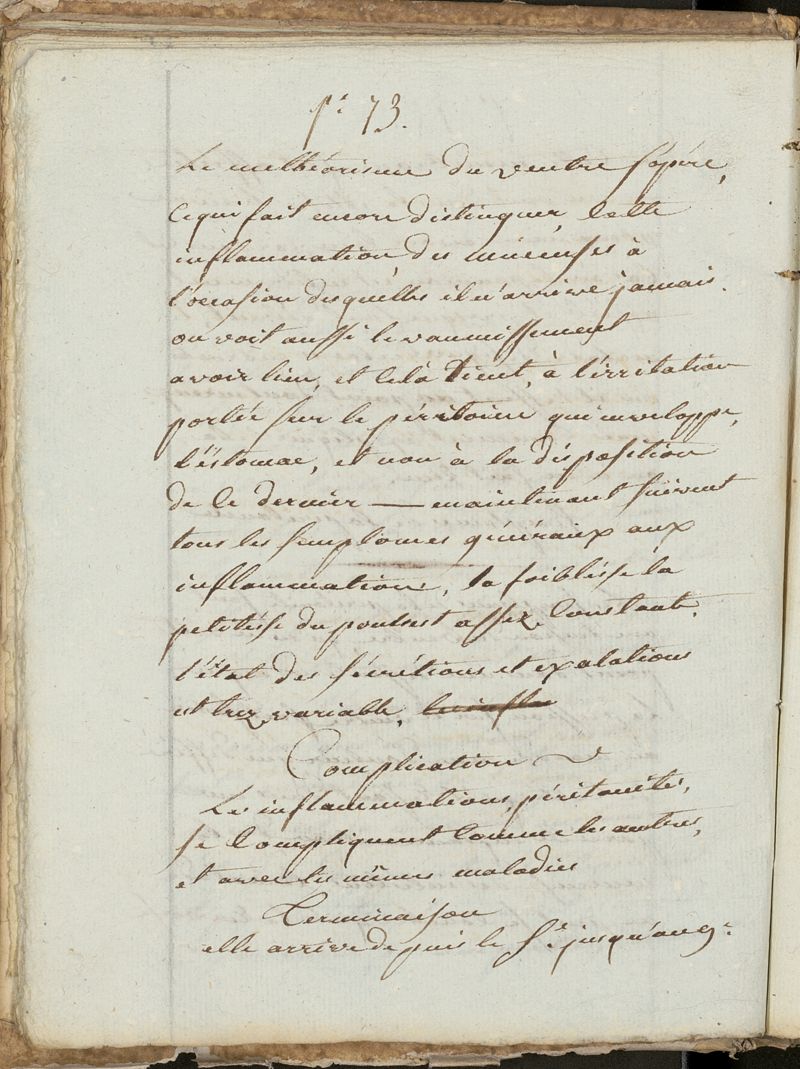 pe. 73.
Le methéorisme du ventre s'opére,
ce qui fait encore distinguer, cette
inflammation, des muceuses à
l'occasion desquelles il n'arrive jamais.
on voit aussi le vaumissement
avoir lieu, et celà tient, à l'irritation
portée sur le péritoine qui enveloppe,
l'éstomac, et non à la disposition
de ce dernier — maintenant suivent
tous les symptomes généraux aux
inflammations, la foiblésse la
petitésse du poulset assez constant.
l'état des sécrétions et exalations
est trez variable,
Complication
Les inflammations, péritonéales,
se compliquent comme les autres,
et avec les mêmes maladies
Terminaison
elle arrive depuis le 5e. jusqu'au 9e.